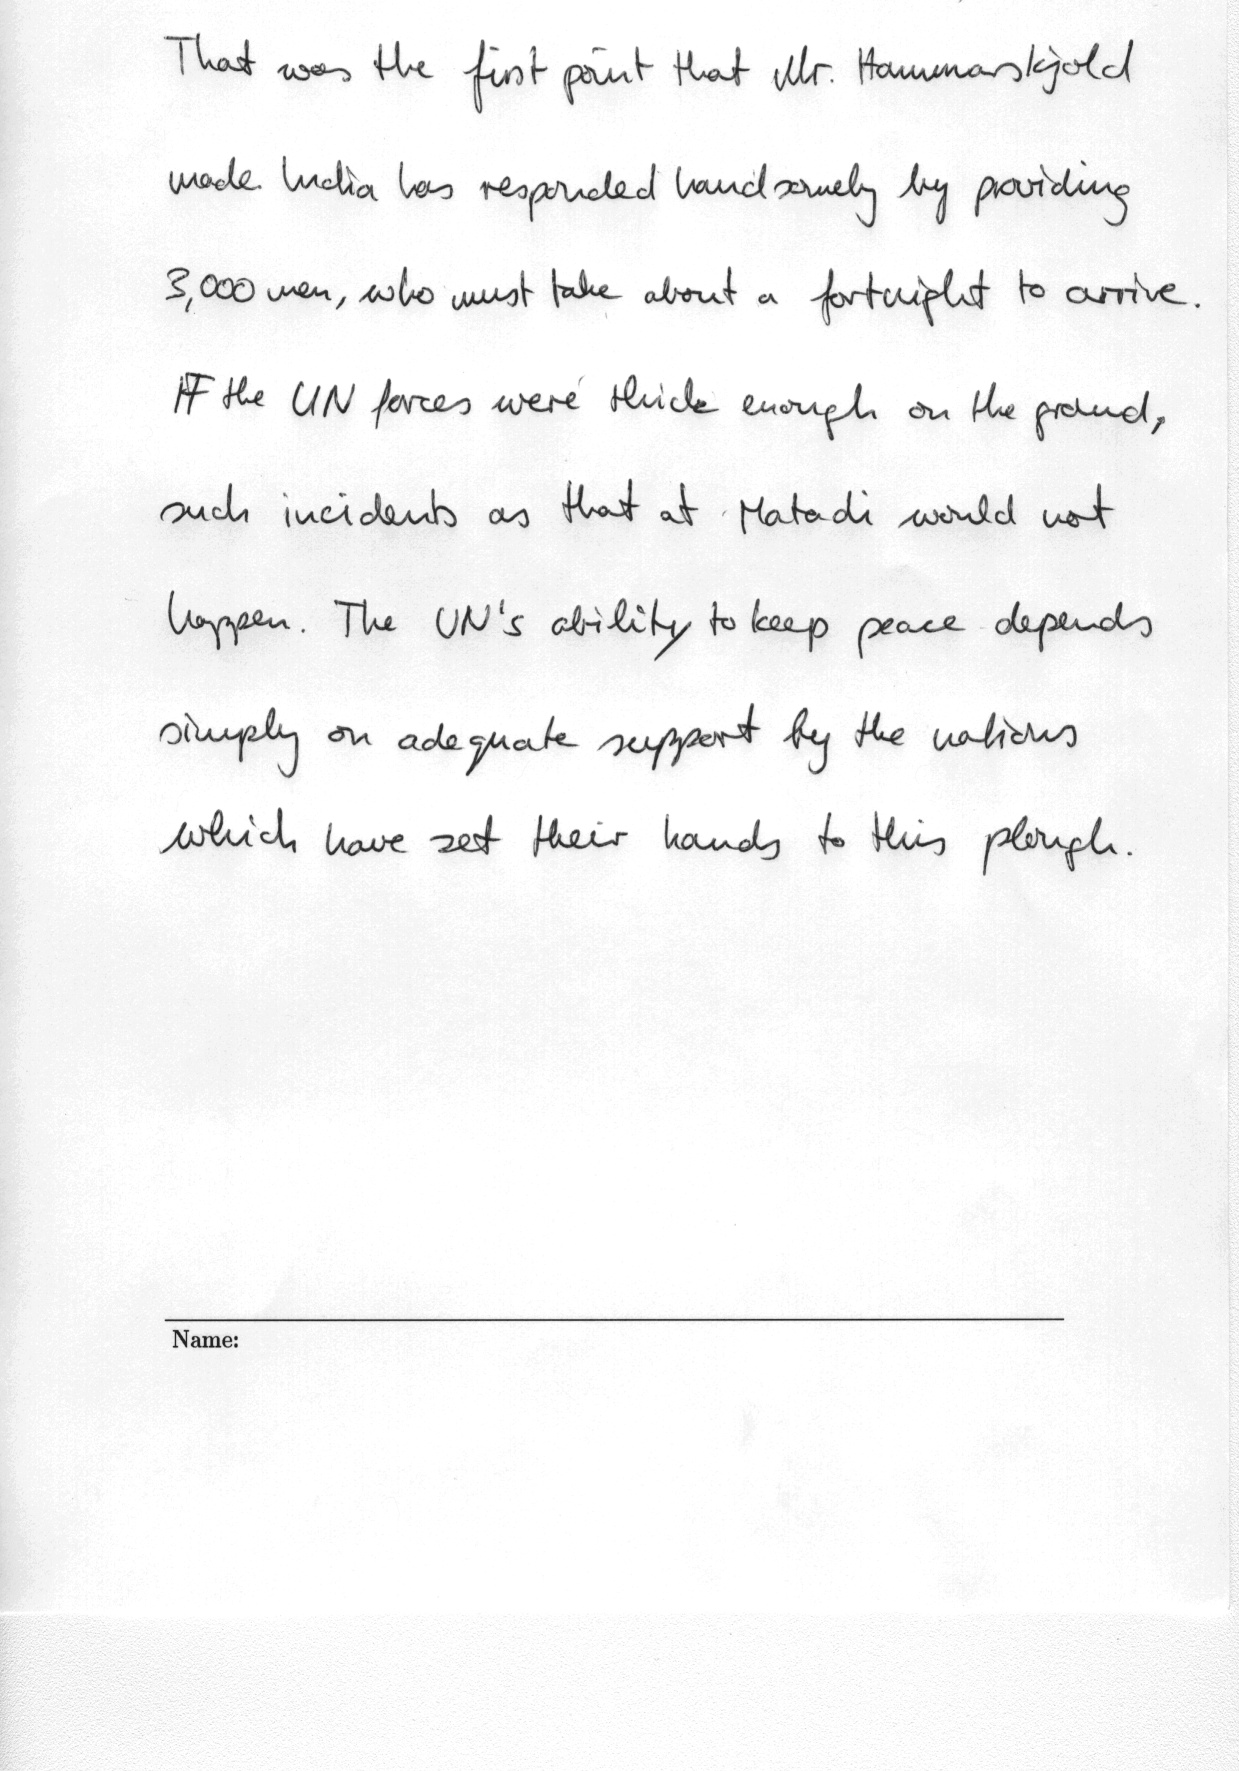 That was the first point that Mr. Hammarskjold
made. India has responded handsomely by providing
3,000 men, who must take about a fortnight to arrive.
If the UN forces were thick enough on the ground,
such incidents as that at Matadi would not
happen. The UN's ability to keep peace depends
simply on adequate support by the nations
which have set their hands to this plough.
Name: